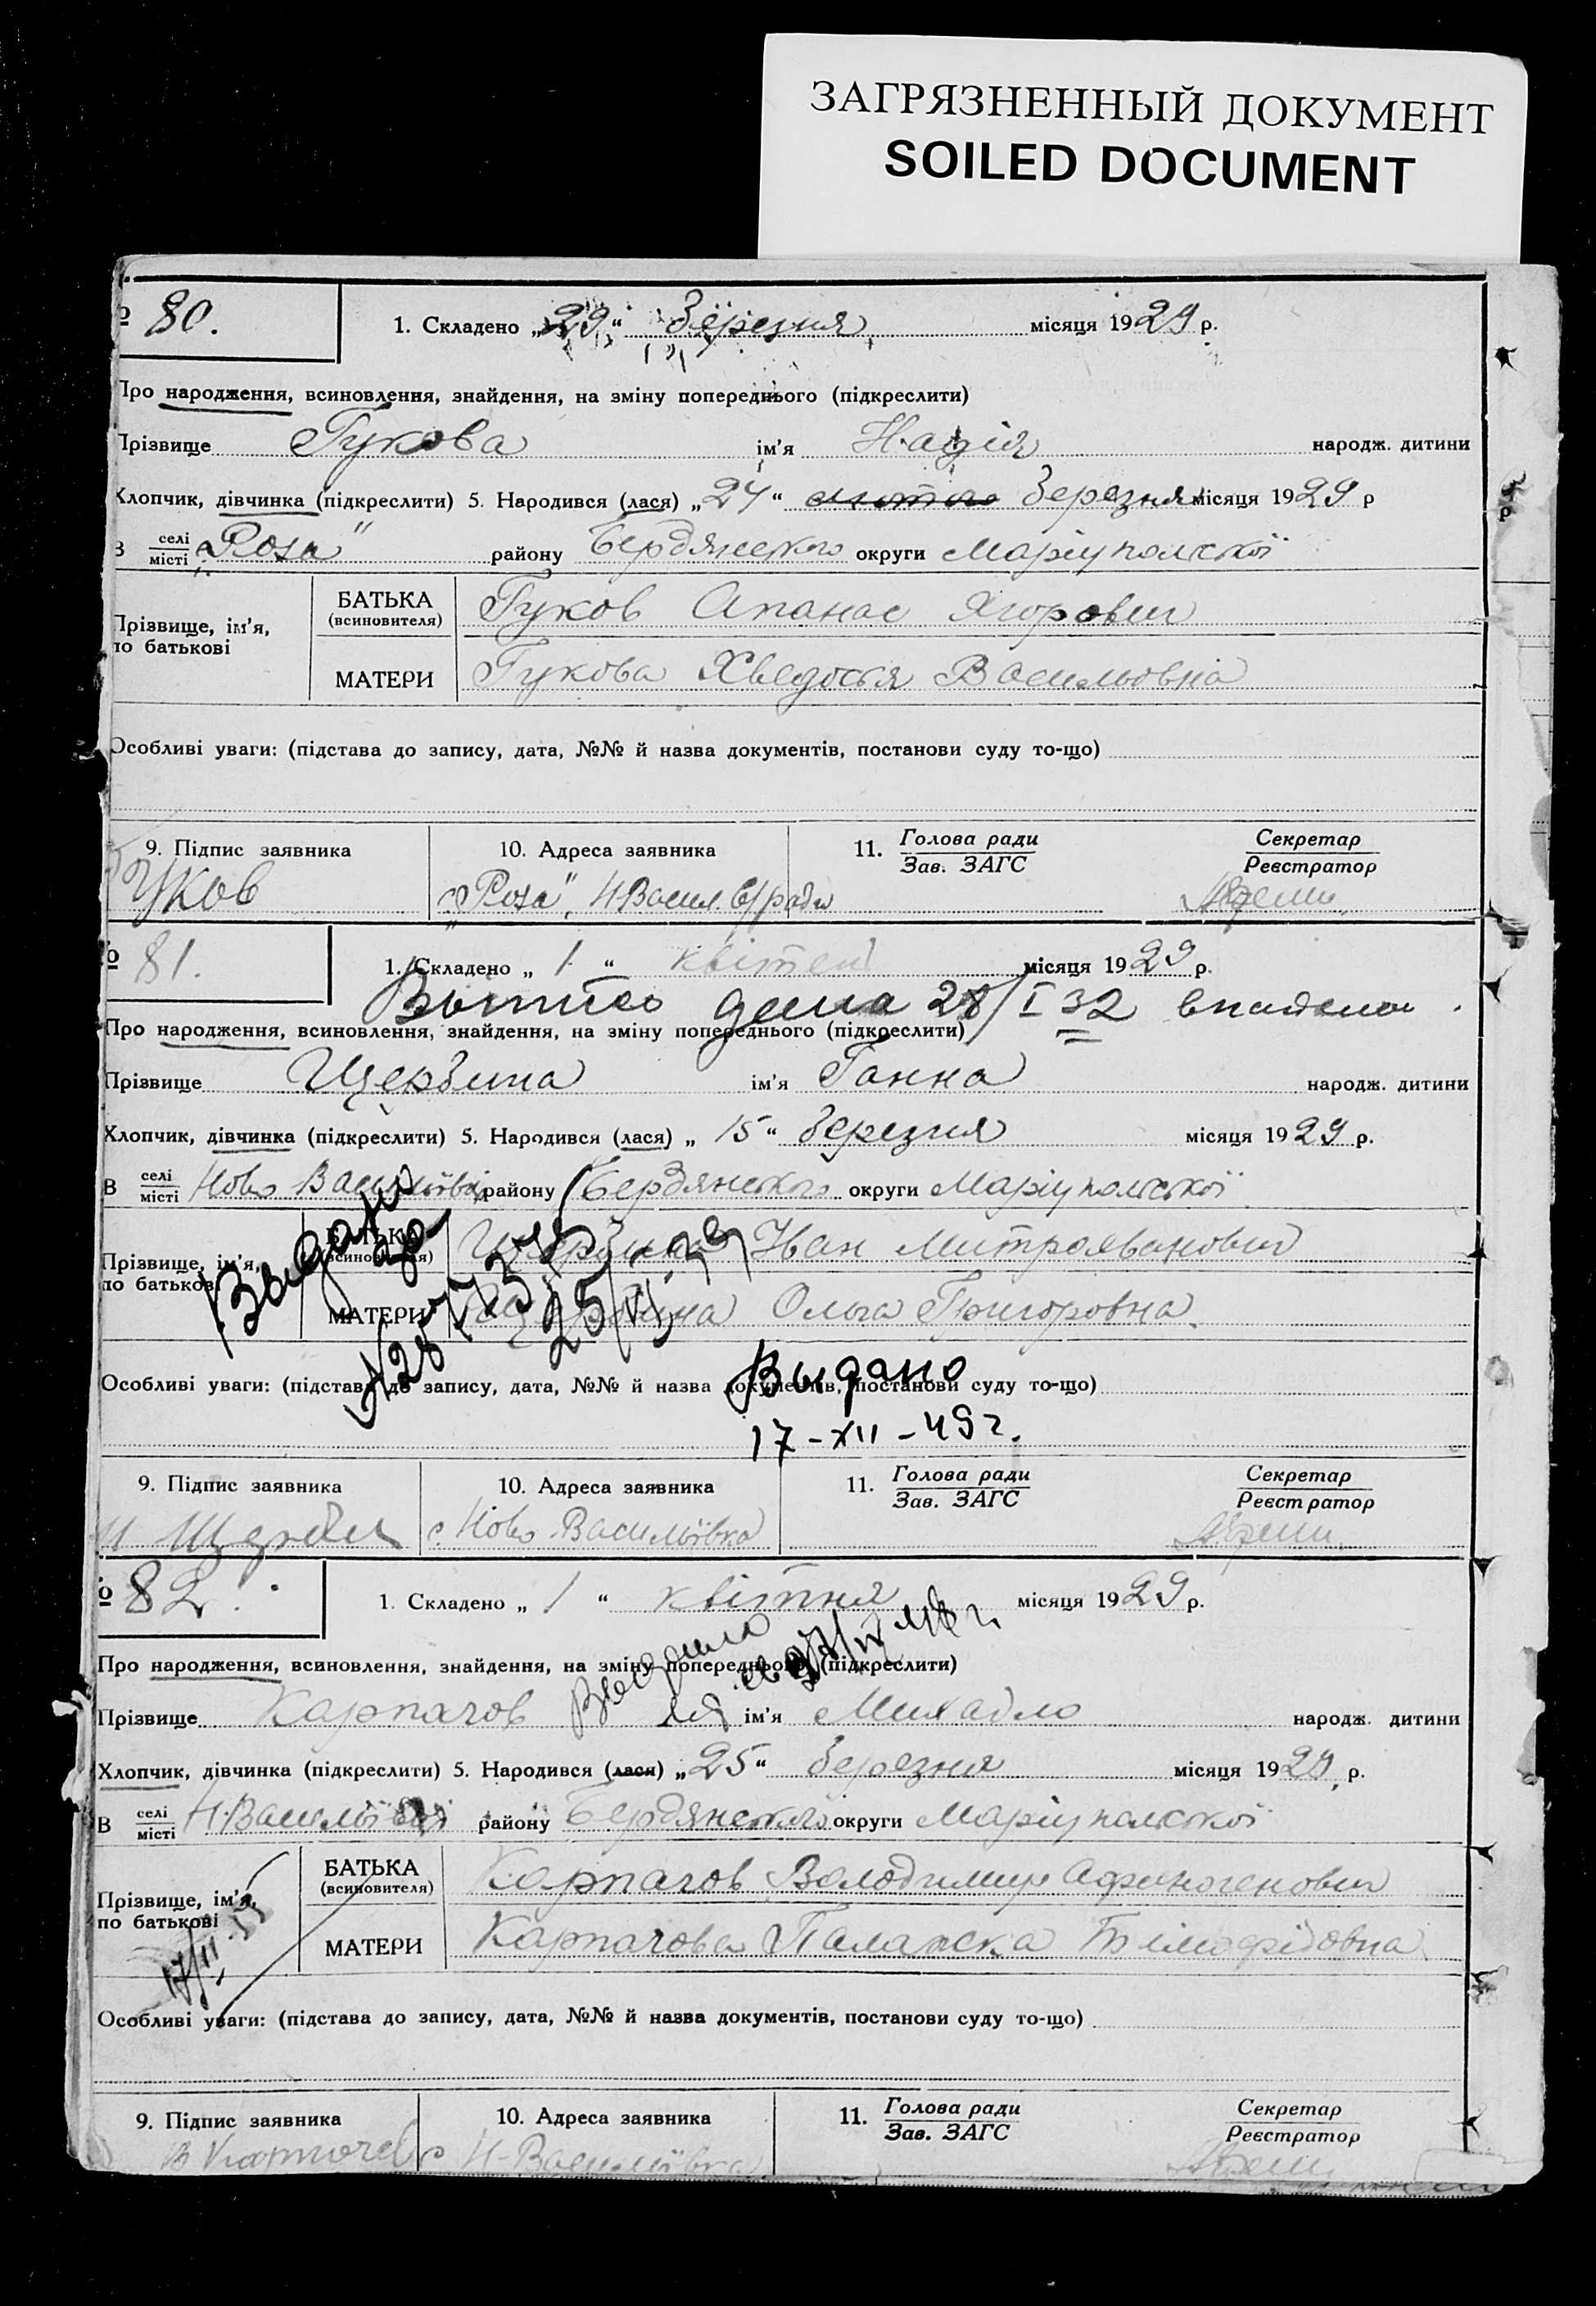 ЗАГРЯЗНЕННЫЙ ДОКУМЕНТ
SOILED DOCUMENT
№ 80.
1. Складено „29“ березня місяця 1929 р.
Про народження, всиновлення, знайдення, на зміну попереднього (підкреслити)
Прізвище Гукова ім'я Надія народж. дитини
Хлопчик, дівчинка (підкреслити) 5. Народився (лася) „24“ лютого березня місяця 1929 р
В селі/місті „Роза“ району Бердянського округи Маріупольскої
Прізвище, ім'я, по батькові
БАТЬКА (всиновителя) Гуков Апанас Ягорович
МАТЕРИ Гукова Хведосья Васильовна
Особливі уваги: (підстава до запису, дата, №№ й назва документів, постанови суду то-що)
9. Підпис заявника 10. Адреса заявника 11. Голова ради/Зав. ЗАГС Секретар/Реєстратор
Гуков „Роза“, Н Васил. с/ради
№ 81.
1. Складено „1“ квітень місяця 1929 р.
28/I 32
Про народження, всиновлення, знайдення, на зміну попереднього (підкреслити)
Прізвище Щербина ім'я Ганна народж. дитини
Хлопчик, дівчинка (підкреслити) 5. Народився (лася) „15“ березня місяця 1929 р.
В селі/місті Ново Васильївці району Бердянського округи Маріупольської
Прізвище, ім'я, по батькові
БАТЬКА (всиновителя) Щербина Іван Митрофанович
МАТЕРИ Щербина Ольга Григоровна.
Особливі уваги: (підстава до запису, дата, №№ й назва документів, постанови суду то-що)
Выдано
17-XII-49г.
9. Підпис заявника 10. Адреса заявника 11. Голова ради/Зав. ЗАГС Секретар/Реєстратор
с. Ново Васильївка
№ 82.
1. Складено „1“ квітня місяця 1929 р.
Про народження, всиновлення, знайдення, на зміну попереднього (підкреслити)
Прізвище Карпачов ім'я Михайло народж. дитини
Хлопчик, дівчинка (підкреслити) 5. Народився (лася) „25“ березня місяця 1929 р.
В селі/місті Н-Васильївці району Бердянського округи Маріупольскої
Прізвище, ім'я, по батькові
БАТЬКА (всиновителя) Карпачов Володимир Афиногенович
МАТЕРИ Карпачова Палажска
Особливі уваги: (підстава до запису, дата, №№ й назва документів, постанови суду то-що)
9. Підпис заявника 10. Адреса заявника 11. Голова ради/Зав. ЗАГС Секретар/Реєстратор
с Н-Васильївка